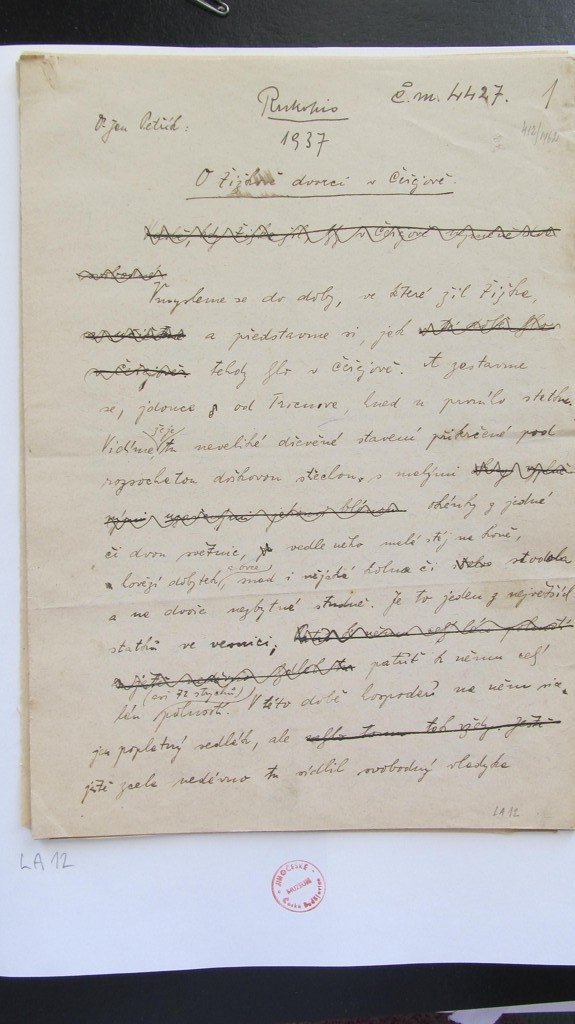 Rukopis
Č.m. 4427.
1
Dr Jan Petřík:
1937
412/1162
O Žižkově dvorci v Čéčjově.
Vmysleme se do doby, ve které žil Žižka,
a představme si, jak
tehdy bylo v Čéčjově. A zastavme
se, jdouce od Trocnova, hned u prvního statku.
Vidíme tu neveliké dřevěné stavení přikrčené pod
rozsochatou doškovou střechou, s malými okénky z jedné
či dvou světnic, vedle něho malá stáj na koně,
hovězí dobytek, a ovce, snad i nějaká kolna či stodola
a na dvoře nezbytná studně. Je to jeden z největších
statků ve vesnici, patřit k němu celý
lán polností. (asi 72 strychů) V této době hospodaří na něm sice
jen poplatný sedlák, ale
ještě zcela nedávno tu sídlil svobodný vladyka
LA 12
LA 12
JIHOČESKÉ MUZEUM České Budějovice